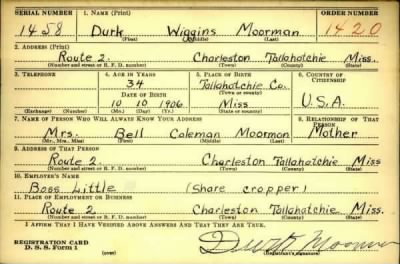 SERIAL NUMBER 1. NAME (Print) ORDER NUMBER
1458 Durk Wiggins Moorman 1420
(First) (Middle) (Last)
2. ADDRESS (Print)
Route 2. Charleston Tallahatchie Miss.
(Number and street or R. F. D. number) (Town) (County) (State)
3. TELEPHONE 4. AGE IN YEARS 5. PLACE OF BIRTH 6. COUNTRY OF CITIZENSHIP
34 Tallahatchie Co.
DATE OF BIRTH (Town or county)
10 10 1906 Miss U.S.A.
(Exchange) (Number) (Mo.) (Day) (Yr.) (State or country)
7. NAME OF PERSON WHO WILL ALWAYS KNOW YOUR ADDRESS 8. RELATIONSHIP OF THAT PERSON
Mrs. Bell Coleman Moorman Mother
(Mr., Mrs., Miss) (First) (Middle) (Last)
9. ADDRESS OF THAT PERSON
Route 2. Charleston Tallahatchie Miss
(Number and street or R. F. D. number) (Town) (County) (State)
10. EMPLOYER'S NAME
Boss Little (Share cropper)
11. PLACE OF EMPLOYMENT OR BUSINESS
Route 2. Charleston Tallahatchie Miss.
(Number and street or R. F. D. number) (Town) (County) (State)
I AFFIRM THAT I HAVE VERIFIED ABOVE ANSWERS AND THAT THEY ARE TRUE.
REGISTRATION CARD
D. S. S. Form 1 Moorman
(over) (Registrant's signature)